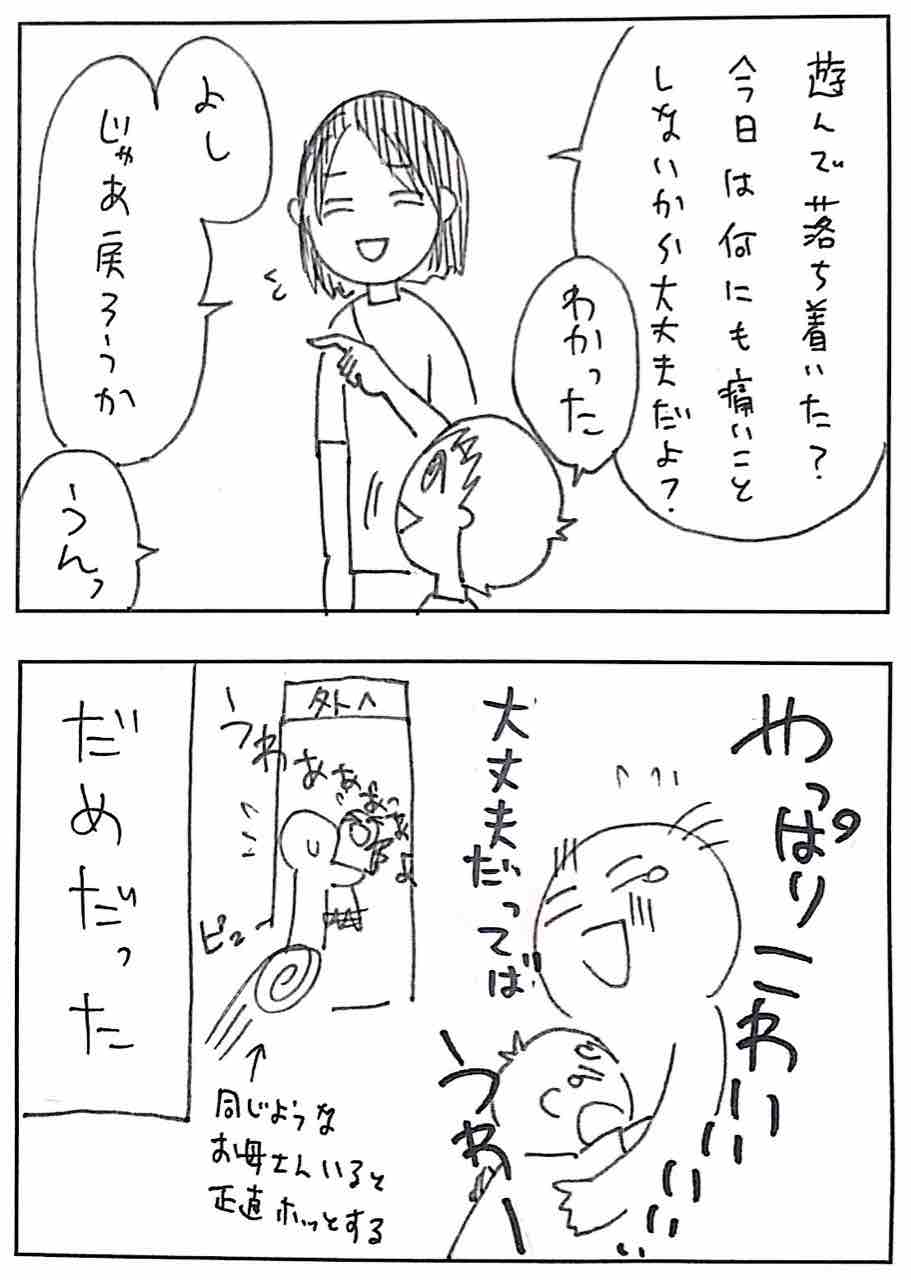 遊んで落ち着いた?
今日は何にも痛いこと
しないから大丈夫だよ?
わかった
よし
じゃあ戻ろうか
うんっ
やっぱりこわいいいいいい
大丈夫だってば
うわー
外へ
うわぁぁぁぁぁ
ピュー
↑
同じような
お母さんいると
正直ホッとする
だめだった